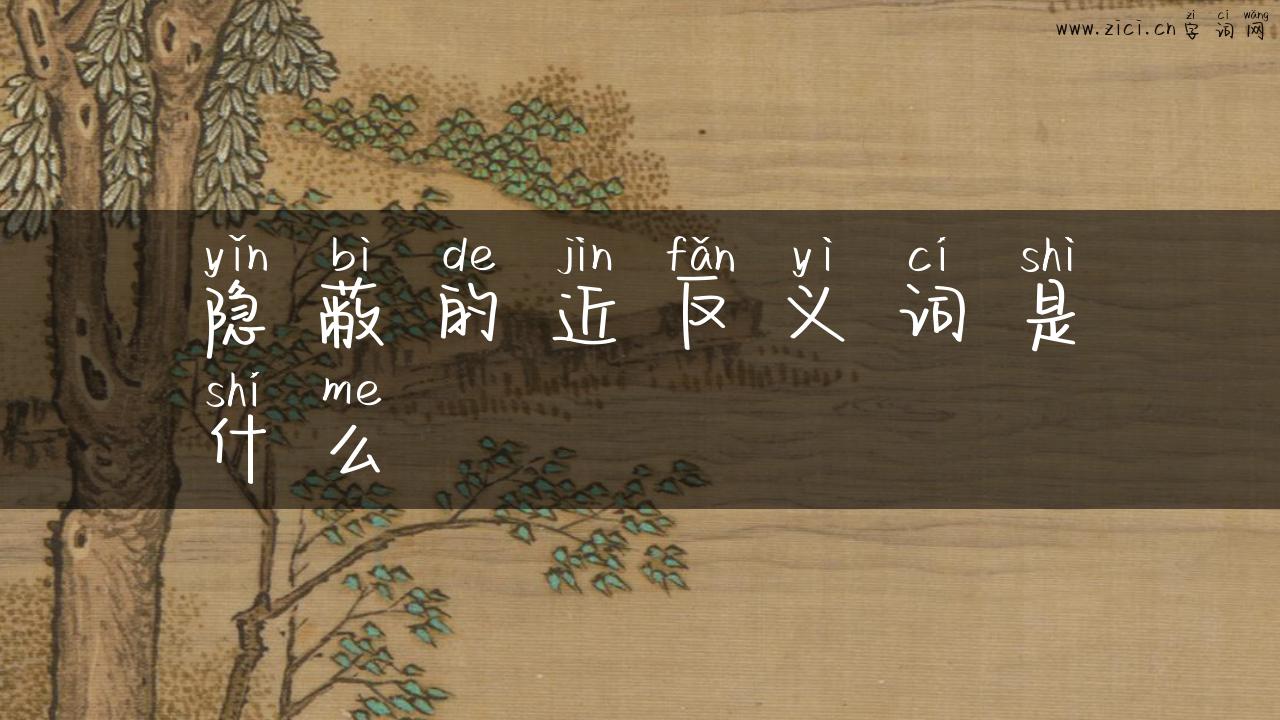 zì cí wǎng
www.zici.cn 字词网
yǐn bì de jìn fǎn yì cí shì
隐蔽的近反义词是
shí me
什么